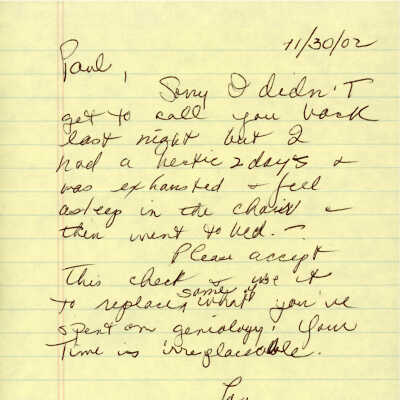 11/30/02
Paul,
Sorry I didn't
get to call you back
last night but I
had a hectic 2 days &
was exhausted & fell
asleep in the chair &
then went to bed. –
Please accept
This check & use it
to replace some of what you've
spent on geniology. Your
Time is irreplaceable.